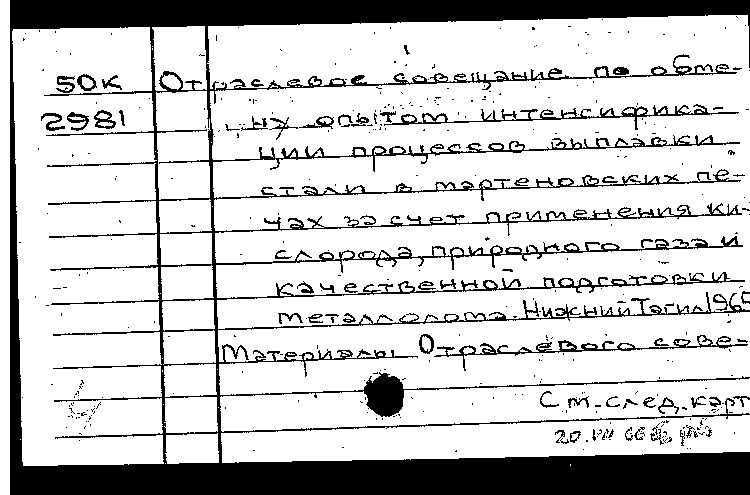 50К Отраслевое совещание по обме-
2981 ну опытом интенсифика-
ции процессов выплавки
стали в мартеновских пе-
чах за счет применения ки-
слорода, природного газа и
качественной подготовки
металлолома. Нижний Тагил, 1965
Материалы Отраслевого сове-
См. след. карт
20.VII 66